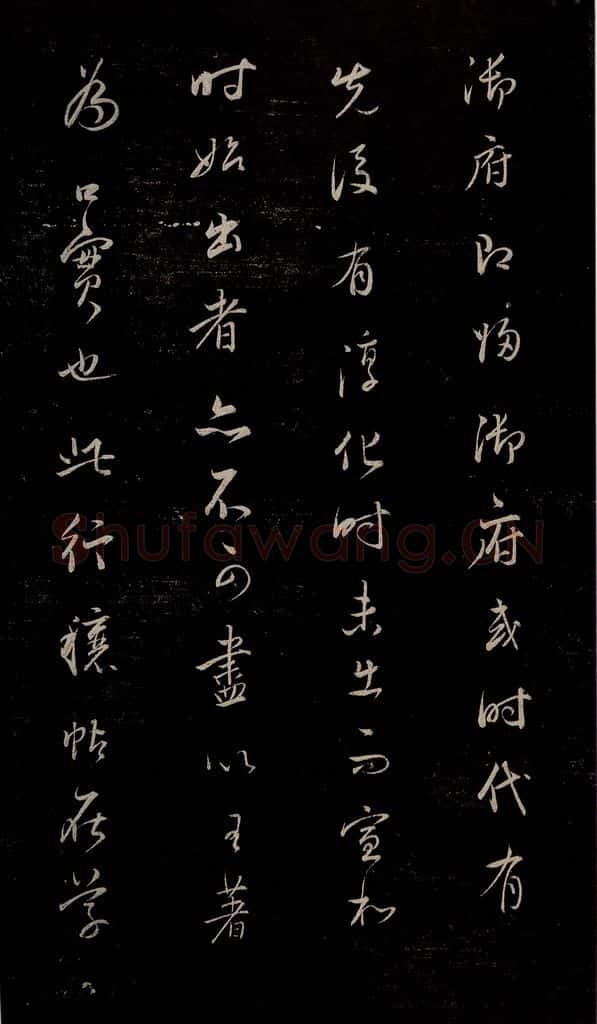 御府即归御府或时代有
先後有淳化时未出而宣和
时始出者亦不可盡以王著
為口實也此行穰帖在学
Shufawang.CN